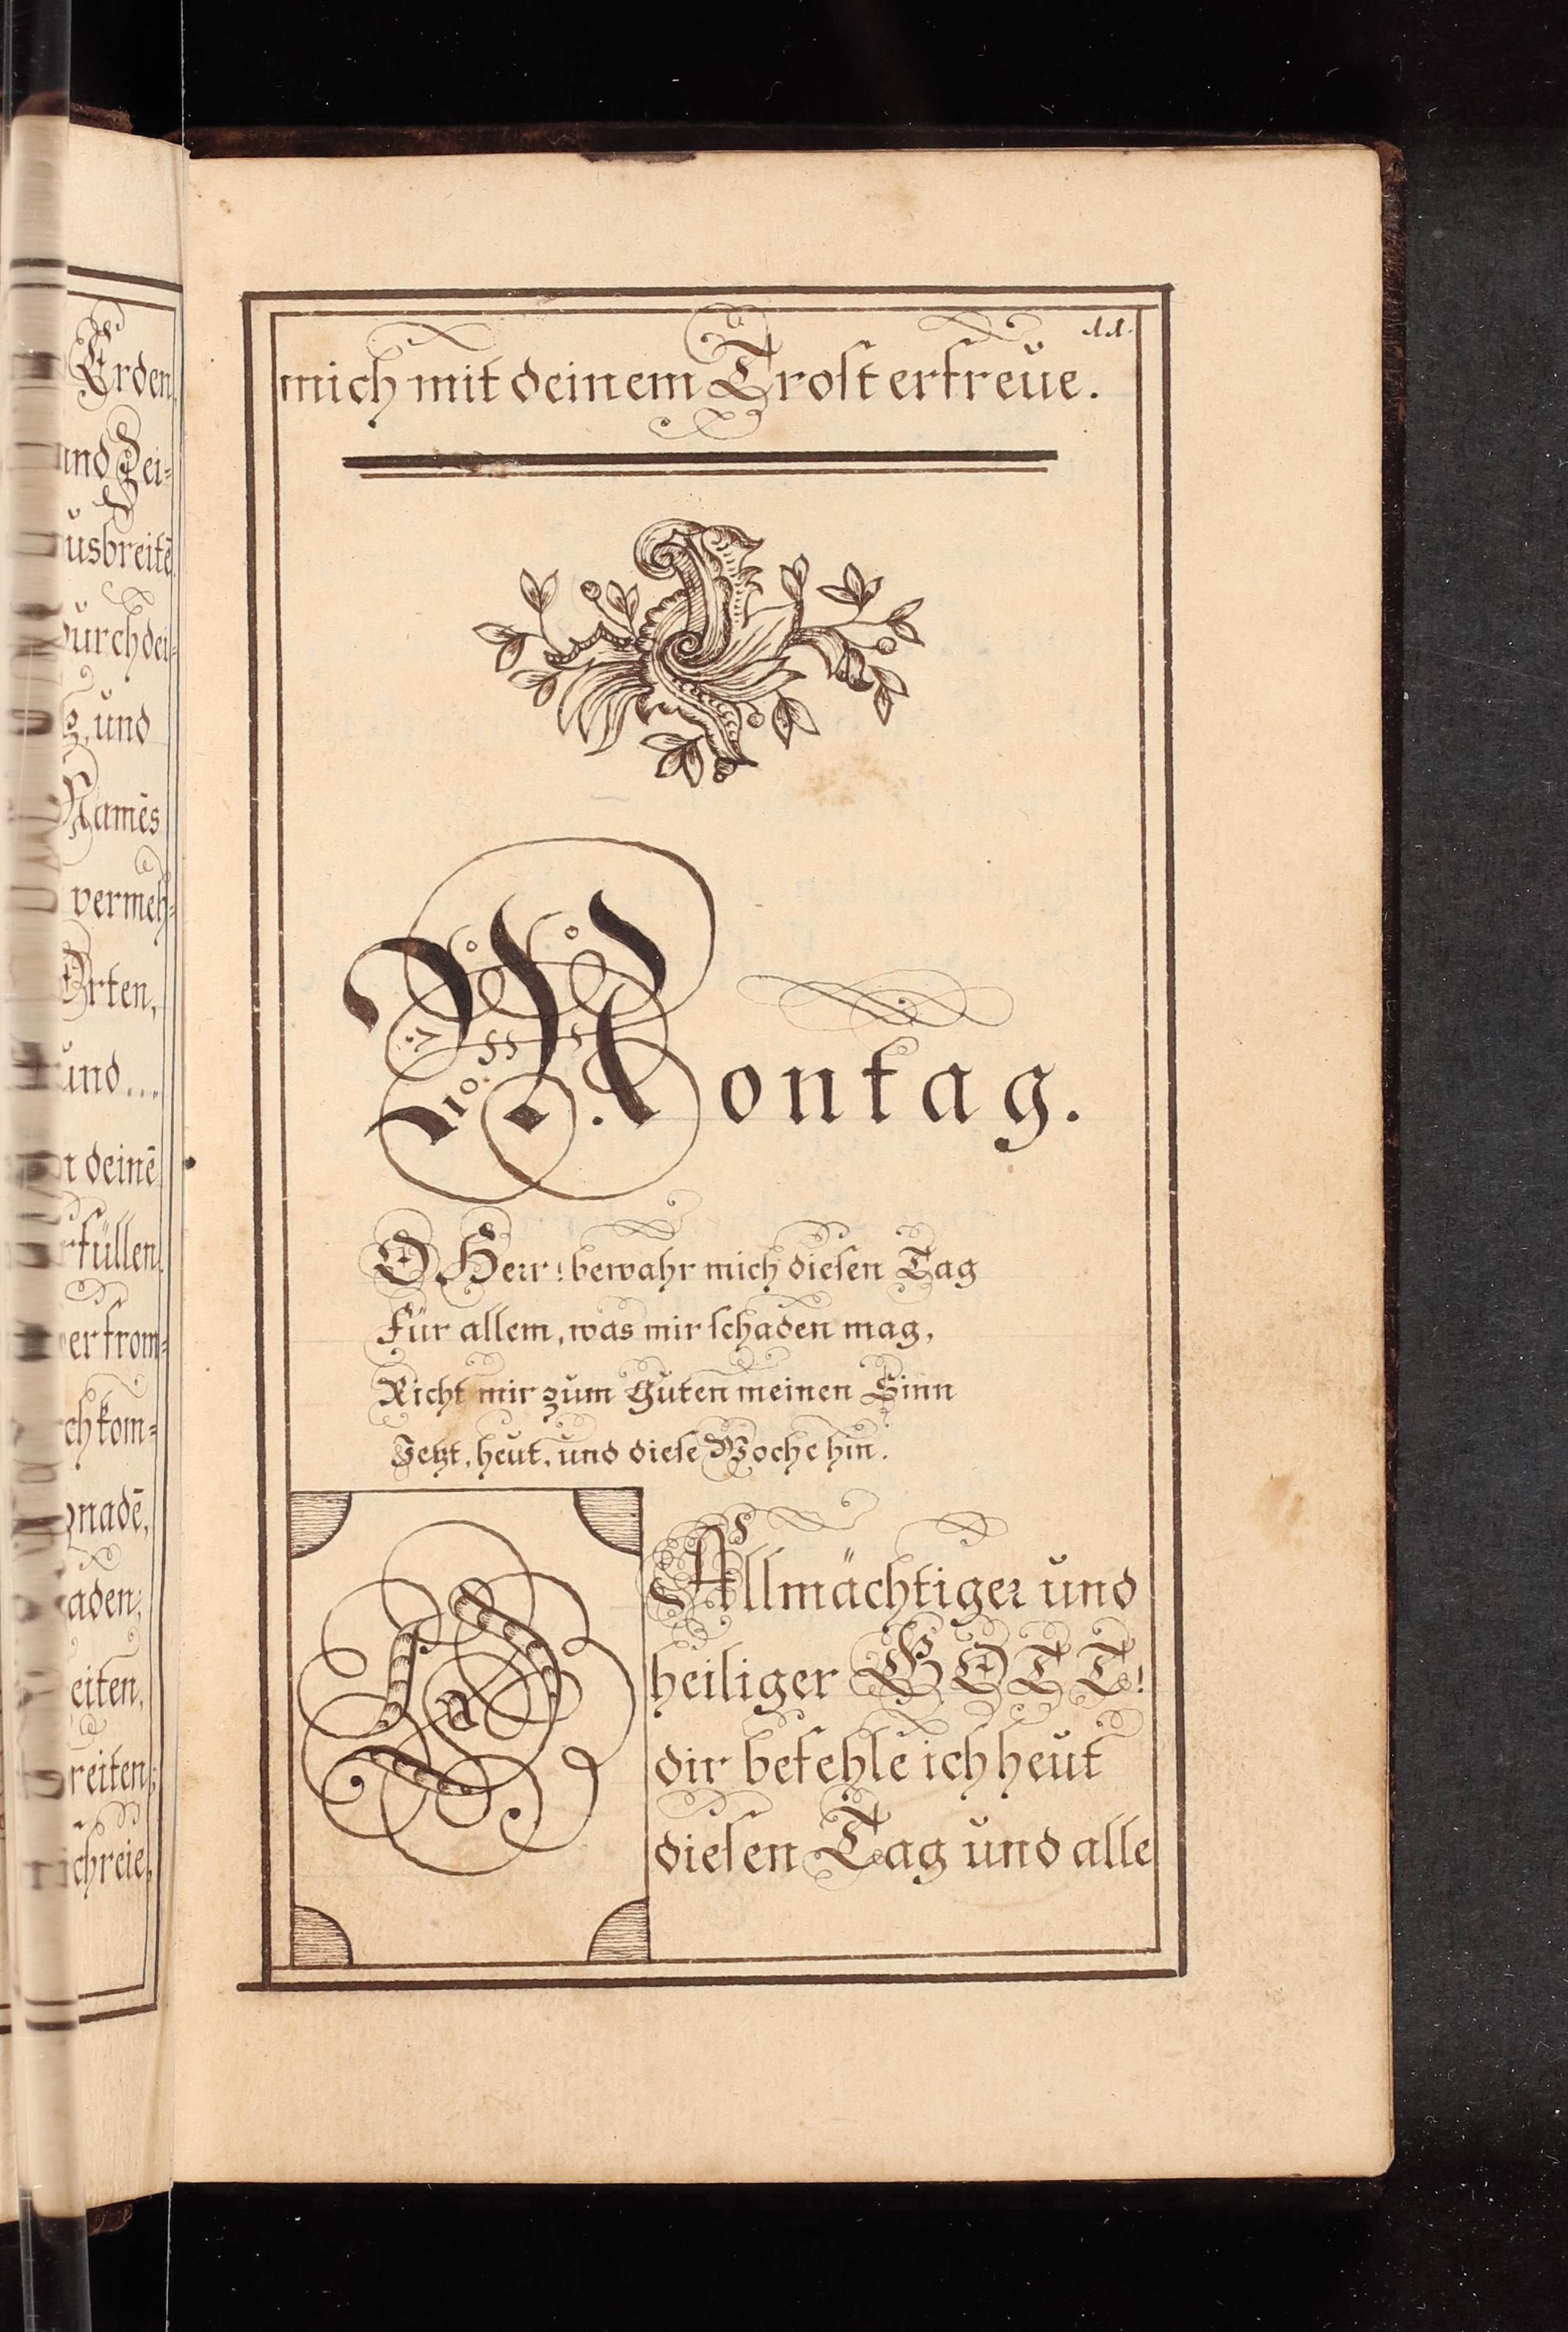 Erden
und Zei-
usbreitē
durch dei-
und
Namēs
vermeh-
Orten,
und...
deinē
füllen
er from-
ch kom-
gnadē,
aden;
eiten,
reiten;
chreie,
11.
mich mit deinem Trost erfreue.
Montag.
O Herr! bewahr mich diesen Tag
Für allem, was mir schaden mag,
Richt mir zum Guten meinen Sinn
Jetzt, heut, und diese Woche hin.
Allmächtiger und
heiliger GOTT!
dir befehle ich heut
diesen Tag und alle